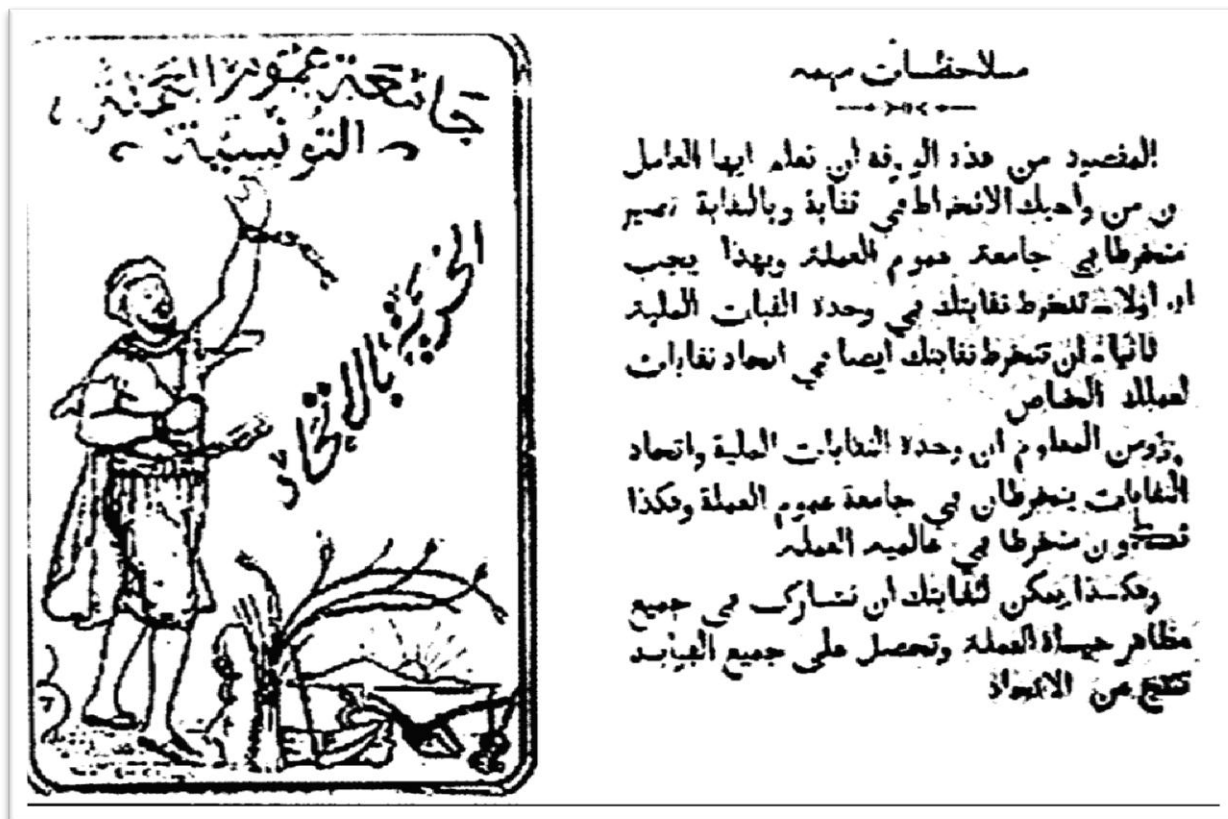 جامعة عموم العملة
التونسية
الحرية بالاتحاد
ملاحظات مهمة
المقصود من هذه الورقة ان تعلم ايها العامل
ن من واجبك الانخراط في نقابة وبالنقابة تصير
منخرطا في جامعة عموم العملة وبهذا يجب
اولا تنخرط نقابتك في وحدة النقابات الملية
ثانيا ان تنخرط نقابتك ايضا في اتحاد نقابات
لعملك الخاص
ومن المعلوم ان وحدة النقابات الملية واتحاد
النقابات ينخرطان في جامعة عموم العملة وهكذا
منخرطا في عالمية العملة
وهكذا يمكن لنقابتك ان تشارك في جميع
مظاهر حياة العملة وتحصل على جميع
تنتج عن الاتحاد